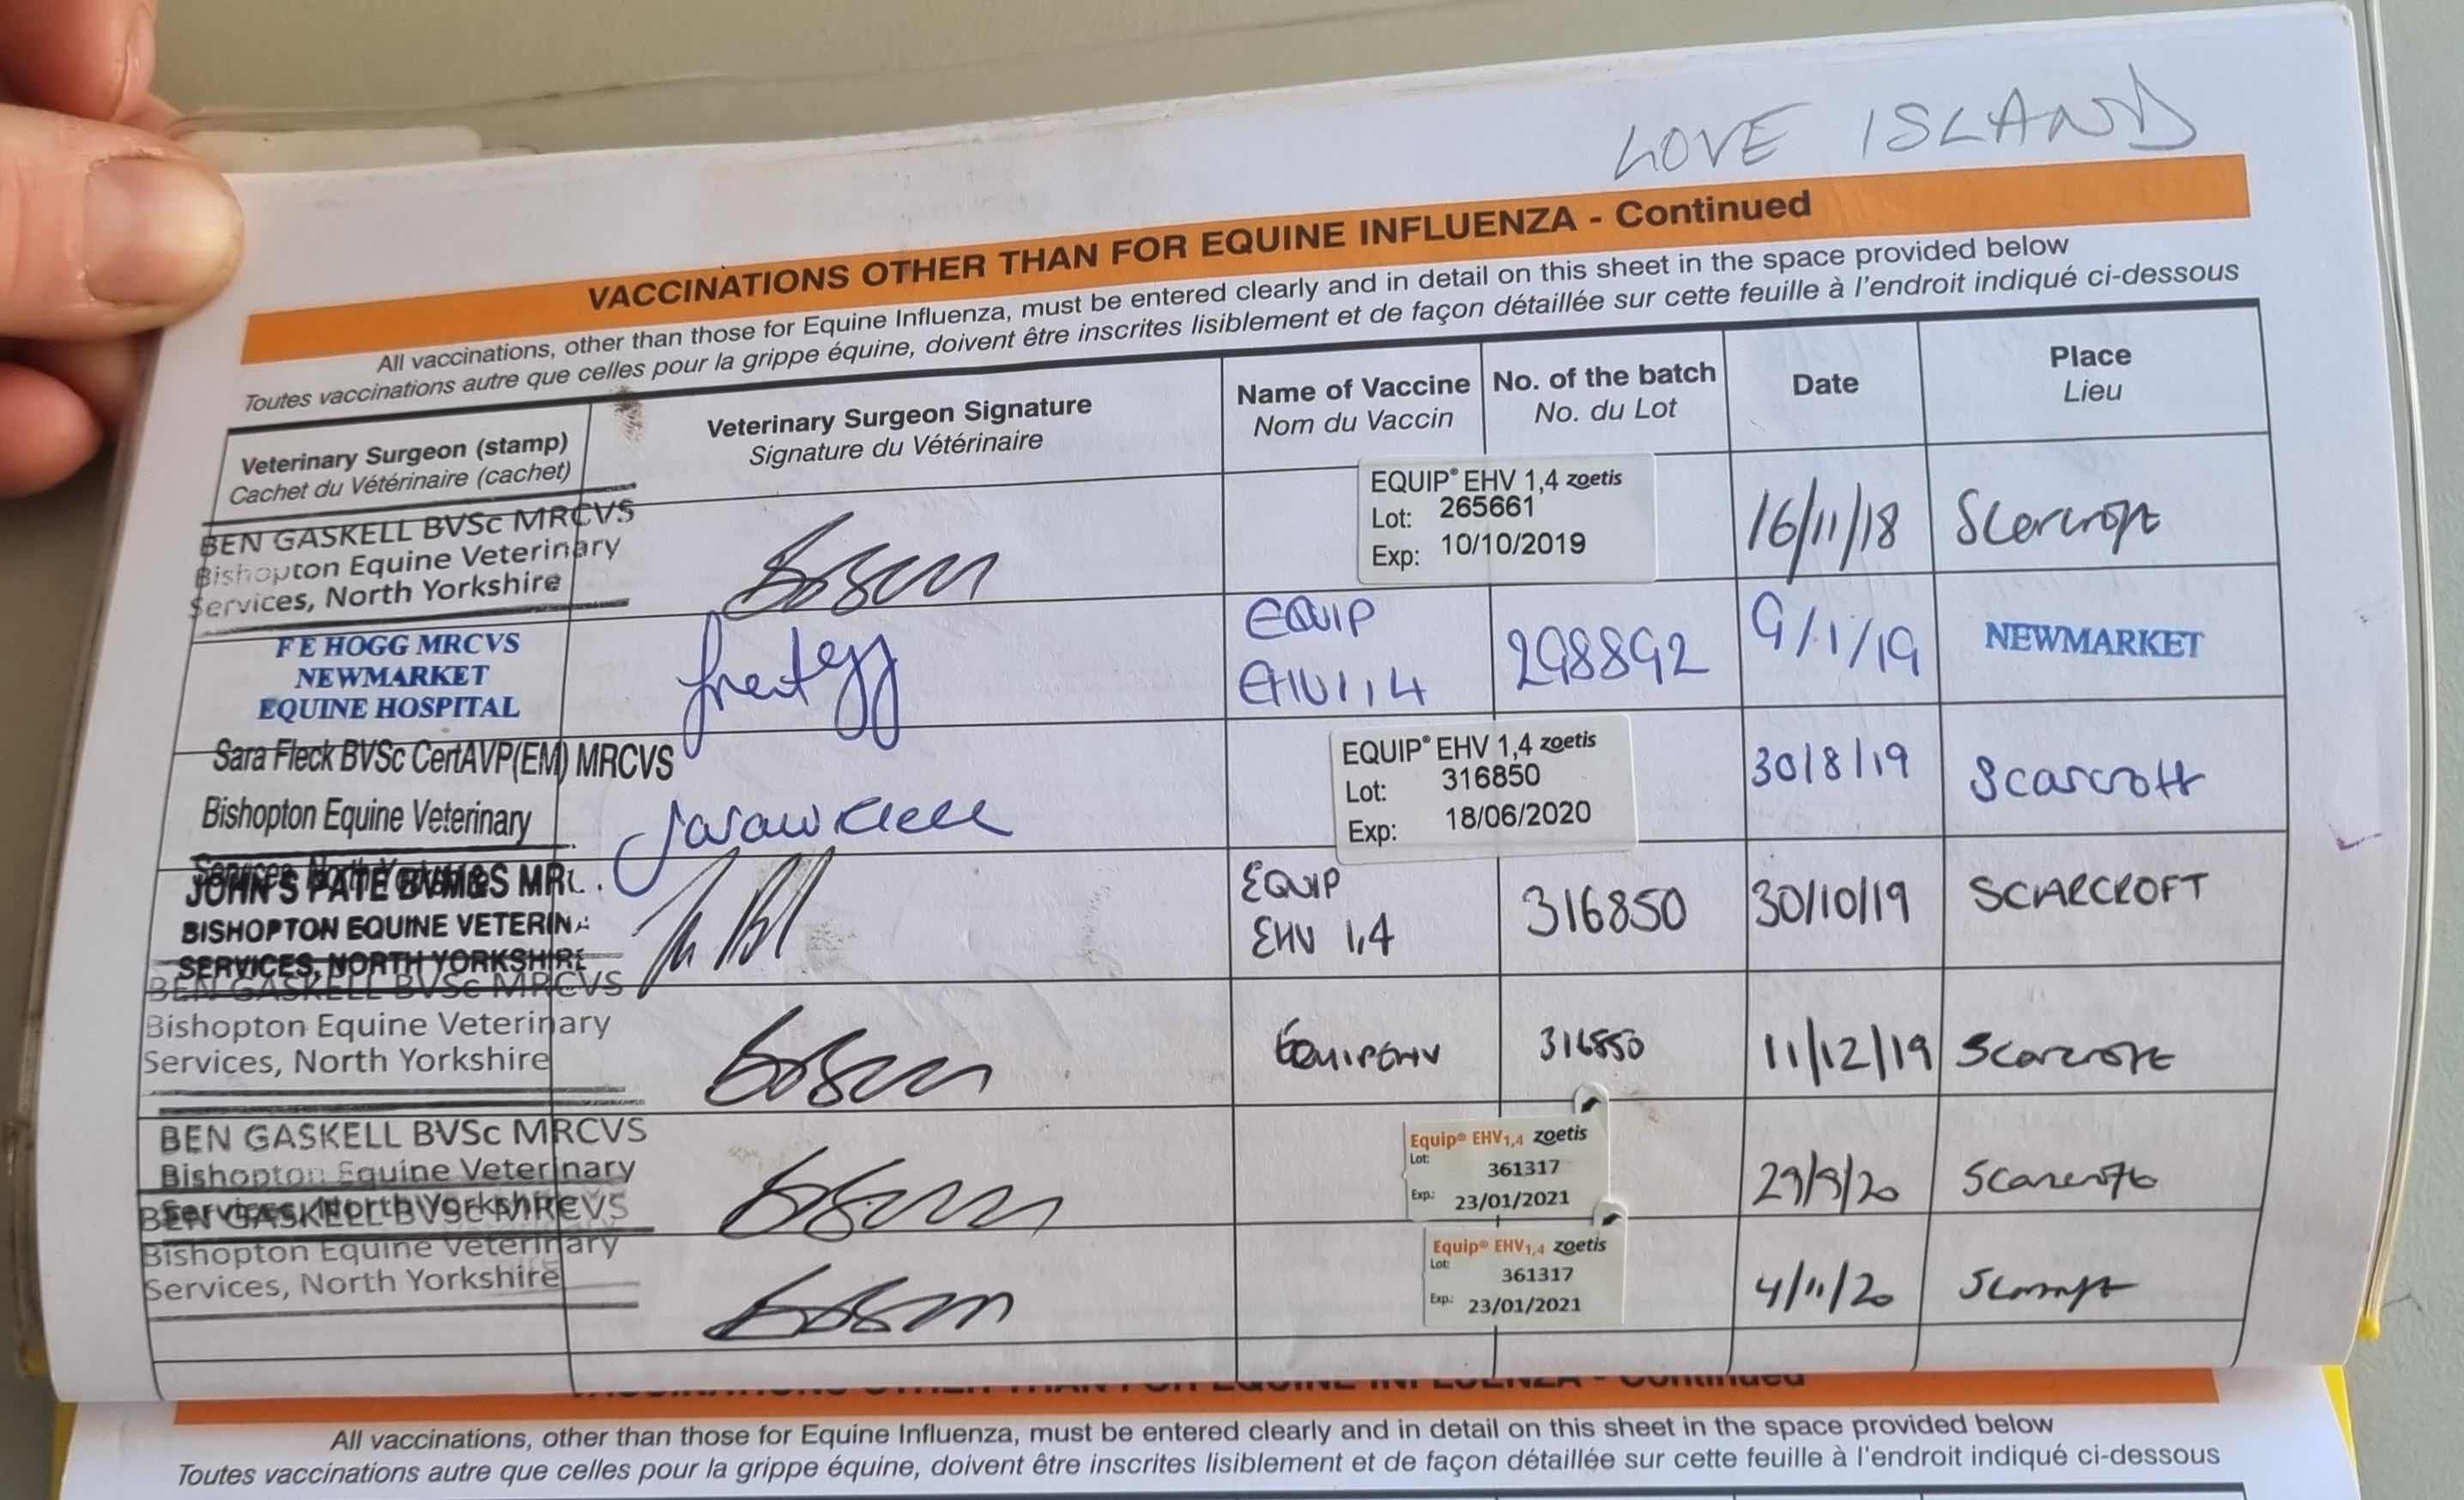 LOVE ISLAND
VACCINATIONS OTHER THAN FOR EQUINE INFLUENZA - Continued
All vaccinations, other than those for Equine Influenza, must be entered clearly and in detail on this sheet in the space provided below
Toutes vaccinations autre que celles pour la grippe équine, doivent être inscrites lisiblement et de façon détaillée sur cette feuille à l'endroit indiqué ci-dessous
Veterinary Surgeon (stamp)
Cachet du Vétérinaire (cachet)
Veterinary Surgeon Signature
Signature du Vétérinaire
Name of Vaccine
Nom du Vaccin
No. of the batch
No. du Lot
Date
Place
Lieu
BEN GASKELL BVSc MRCVS
Bishopton Equine Veterinary
Services, North Yorkshire
EQUIP® EHV 1,4 zoetis
Lot: 265661
Exp: 10/10/2019
16/11/18
Scarcroft
F E HOGG MRCVS
NEWMARKET
EQUINE HOSPITAL
EQUIP
EHV 1,4
298892
9/1/19
NEWMARKET
Sara Fleck BVSc CertAVP(EM) MRCVS
Bishopton Equine Veterinary
Services, North Yorkshire
EQUIP® EHV 1,4 zoetis
Lot: 316850
Exp: 18/06/2020
30/8/19
Scarcroft
JOHN S PATE BVM&S MR
BISHOPTON EQUINE VETERINA
SERVICES, NORTH YORKSHIRE
EQUIP
EHV 1,4
316850
30/10/19
SCARCROFT
BEN GASKELL BVSc MRCVS
Bishopton Equine Veterinary
Services, North Yorkshire
EQUIP EHV
316850
11/12/19
Scarcroft
BEN GASKELL BVSc MRCVS
Bishopton Equine Veterinary
Services, North Yorkshire
Equip® EHV1,4 zoetis
Lot: 361317
Exp.: 23/01/2021
29/9/20
Scarcroft
BEN GASKELL BVSc MRCVS
Bishopton Equine Veterinary
Services, North Yorkshire
Equip® EHV1,4 zoetis
Lot: 361317
Exp.: 23/01/2021
4/11/20
Scarcroft
VACCINATIONS OTHER THAN FOR EQUINE INFLUENZA - Continued
All vaccinations, other than those for Equine Influenza, must be entered clearly and in detail on this sheet in the space provided below
Toutes vaccinations autre que celles pour la grippe équine, doivent être inscrites lisiblement et de façon détaillée sur cette feuille à l'endroit indiqué ci-dessous